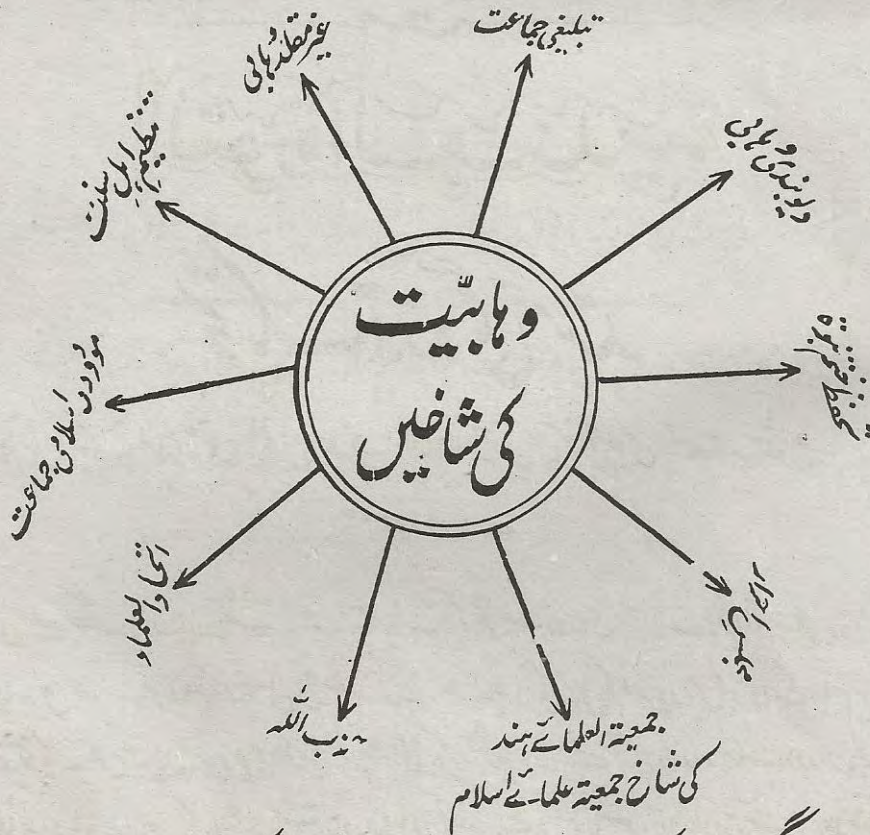 وہابیّت
کی شاخیں
تبلیغی جماعت
دیوبندی وہابی
تحفظ ختم نبوۃ
مجلس احرار
جمعیتہ العلمائے ہند
کی شاخ جمعیتہ علمائے اسلام
حزب اللہ
اتحاد العلماء
مودودی اسلامی جماعت
تنظیم اہل سنت
غیر مقلد وہابی